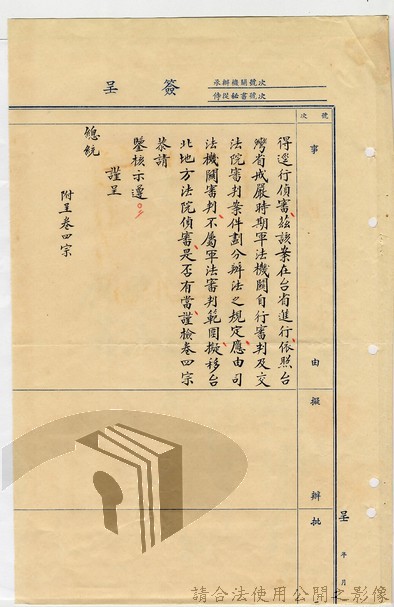 簽呈
承辦機關號次
侍從秘書號次
號次
事由
擬辦
批
呈 年 月
得逕行偵審、茲該案在台省進行、依照台
灣省戒嚴時期軍法機關自行審判及交
法院審判案件劃分辦法之規定、應由司
法機關審判、不屬軍法審判範圍、擬移台
北地方法院偵審、是否有當、謹檢卷四宗
恭請
鑒核示遵。
謹呈
總統
附呈卷四宗
請合法使用公開之影像